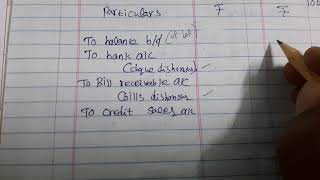 Particulars ₹ ₹ 100
To balance b/d
To bank a/c
(cheque dishonour)
To Bill receivable a/c
(bills dishonour
To credit sales a/c